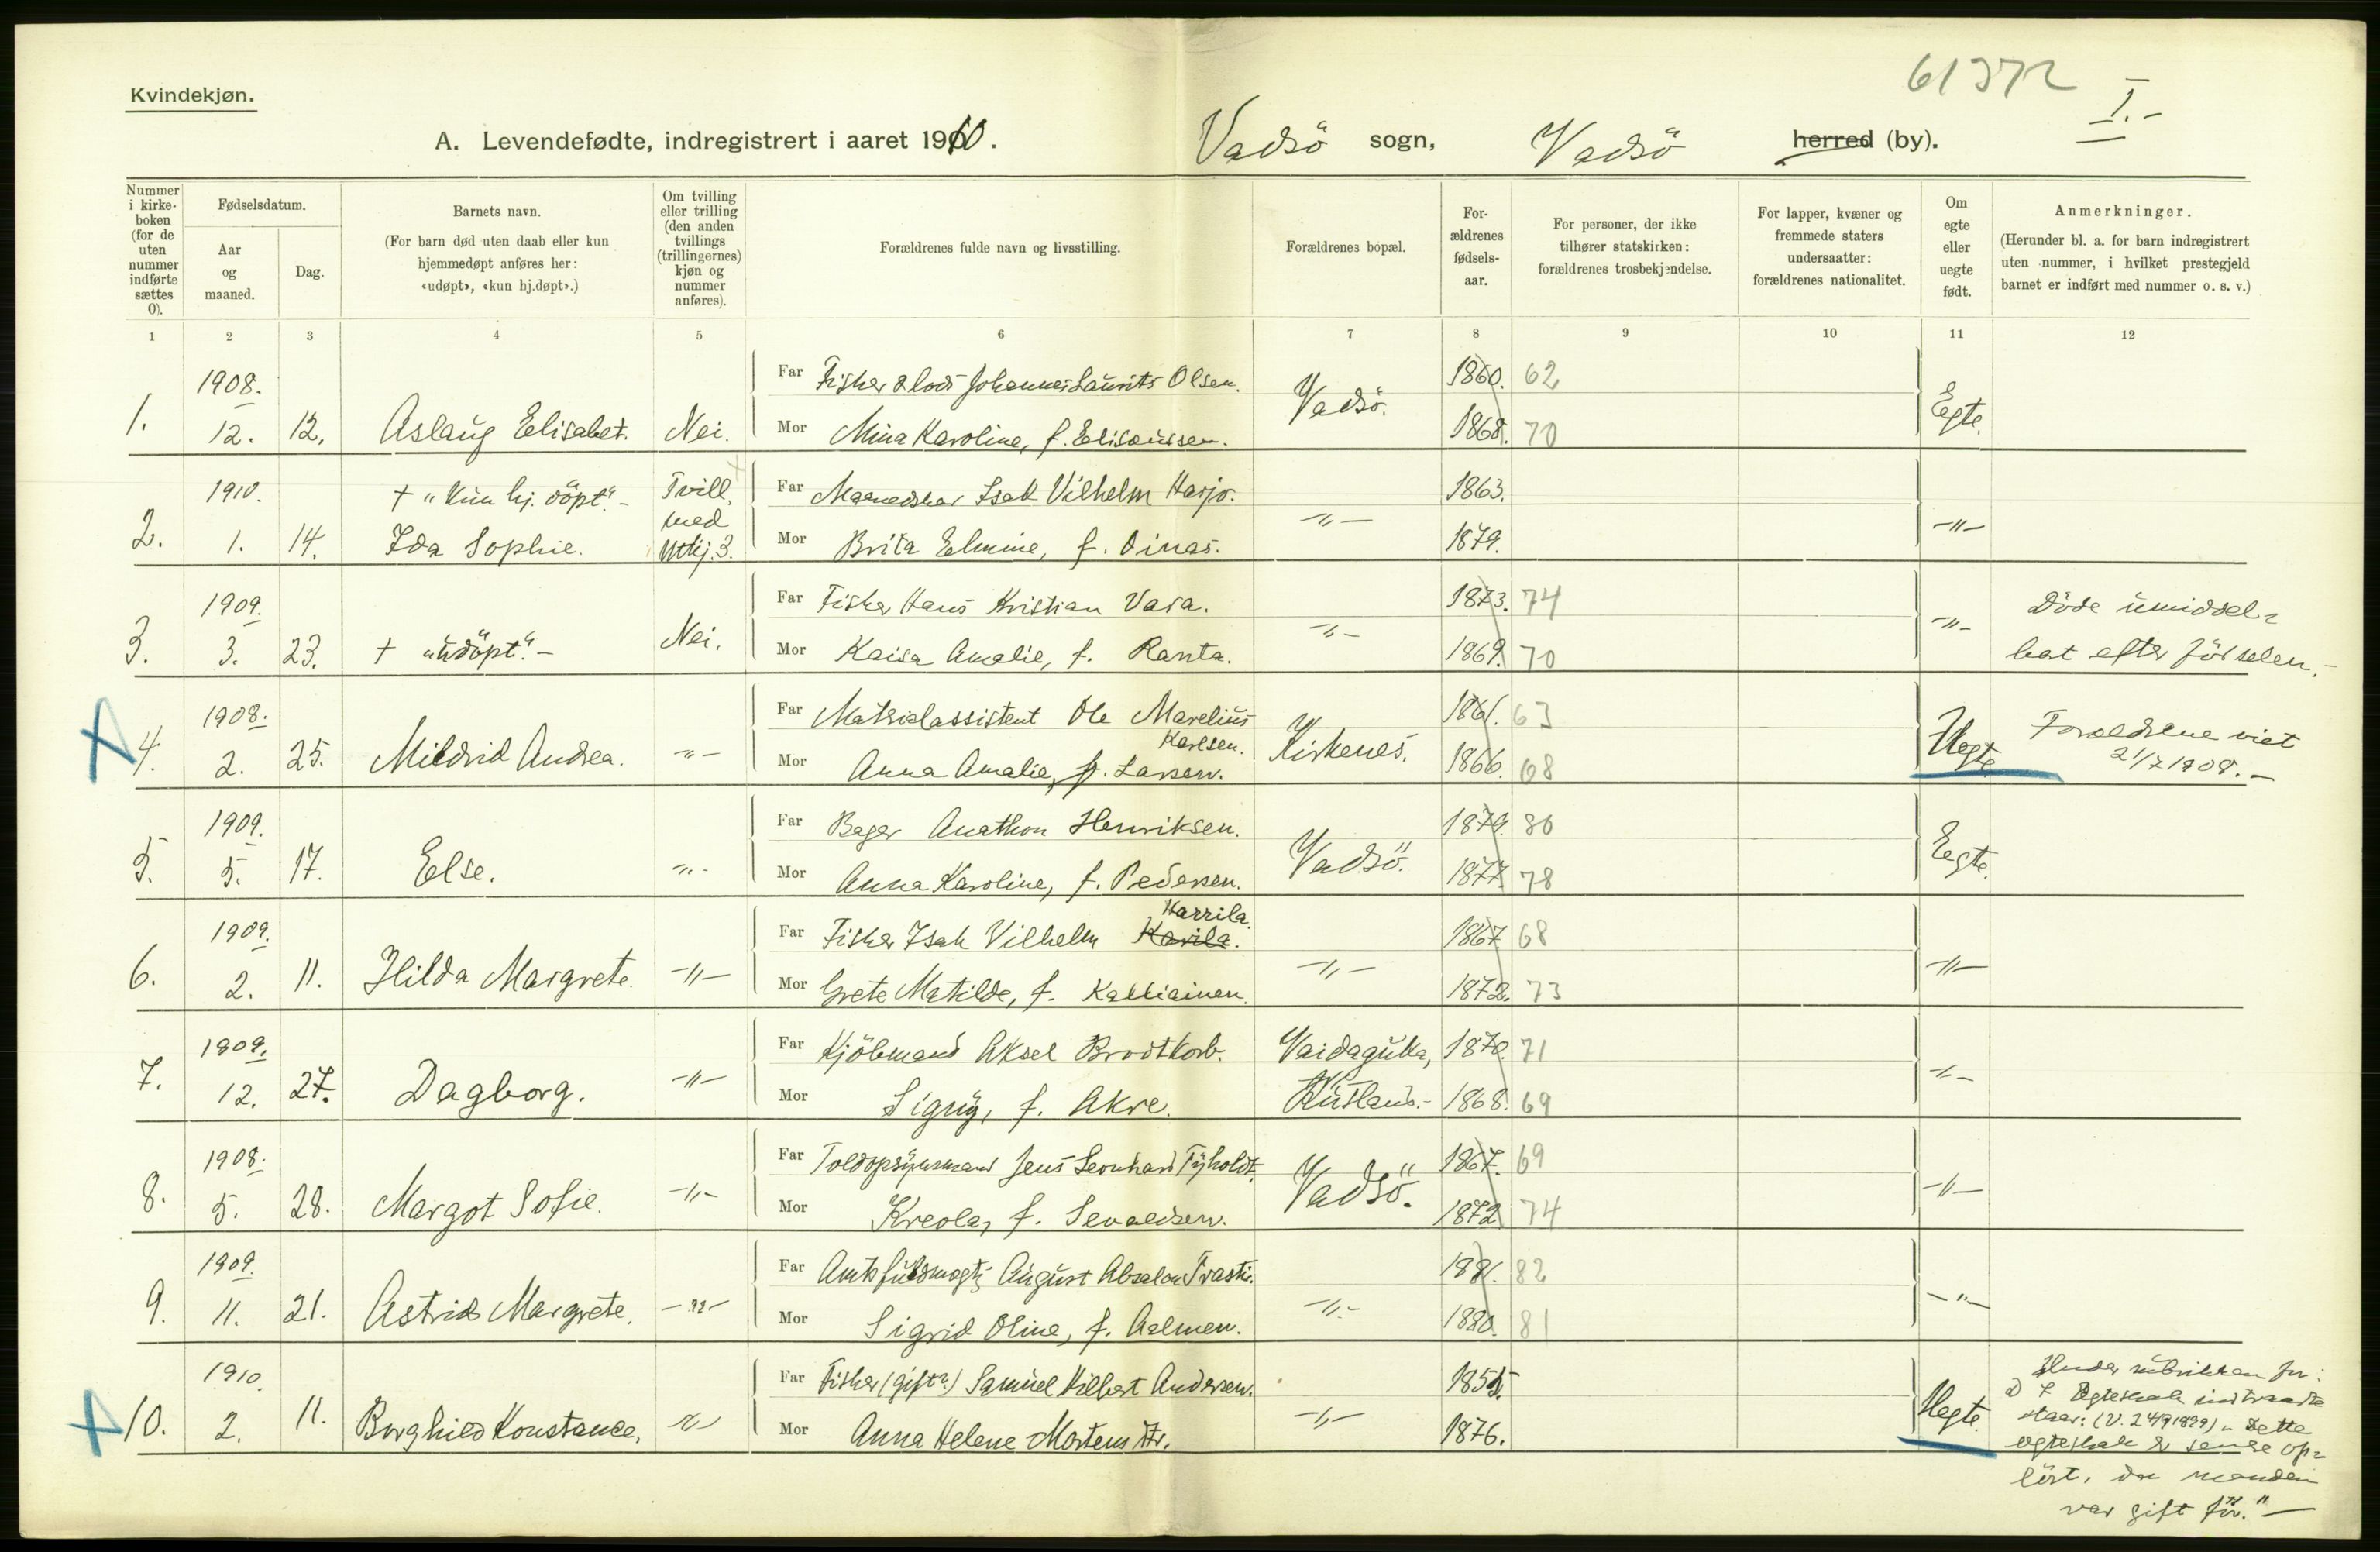 61372
Kvindekjøn.
I.-
A. Levendefødte, indregistrert i aaret 1910.
Vadsö sogn, Vadsö herred (by).
Nummer i kirke-boken (for de uten nummer indførte sættes 0).
Fødselsdatum.
Aar og maaned.
Dag.
Barnets navn.
(For barn død uten daab eller kun
hjemmedøpt anføres her:
«udøpt», «kun hj.døpt».)
Om tvilling eller trilling (den anden tvillings (trillingernes) kjøn og nummer anføres).
Forældrenes fulde navn og livsstilling.
Forældrenes bopæl.
For-ældrenes fødsels-aar.
For personer, der ikke
tilhører statskirken:
forældrenes trosbekjendelse.
For lapper, kvæner og
fremmede staters
undersaatter:
forældrenes nationalitet.
Om egte eller uegte født.
Anmerkninger.
(Herunder bl. a. for barn indregistrert
uten nummer, i hvilket prestegjeld
barnet er indført med nummer o. s. v.)
1 2 3 4 5 6 7 8 9 10 11 12
1908. Far Fisker & lods Johannes Laurits Olsen. Vadsö. 1860. 62 Egte.
1. 12. 12. Aslaug Elisabet. Nei. Mor Mina Karoline, f. Elisæussen. 1868. 70
1910. + "kun hj. döpt". - Tvill. med Far Isak Vilhelm Harjo. -"- 1863. -"-
2. 1. 14. Ida Sophie. Mkj. 3. Mor Brita Elmine, f. Dinas. 1879.
1909. Far Fisker Hans Kristian Vara. -"- 1873. 74 -"- Döde umiddel-
3. 3. 23. + "udöpt". - Nei. Mor Kaisa Amalie, f. Ranta. 1869. 70 bart efter födselen.-
1908. Far Ole Marelius Karlsen. Kirkenes. 1861. 63 Uegte Forældrene viet
4. 2. 25. Mildrid Andrea. -"- Mor Anna Amalie, f. Larsen. 1866. 68 21/7 1908. -
1909. Far Bager Anathon Henriksen. Vadsö. 1879. 80 Egte.
5. 5. 17. Else. -"- Mor Anna Karoline, f. Pedersen. 1877. 78
1909. Far Fisker Isak Vilhelm Karila. Harrila. -"- 1867. 68 -"-
6. 2. 11. Hilda Margrete. -"- Mor Grete Matilde, f. Kalliainen. 1872. 73
1909. Far Kjöbmand Aksel Brodtkorb. Vaidaguba, 1870. 71 -"-
7. 12. 27. Dagborg. -"- Mor Signy, f. Akre. Rusland.- 1868. 69
1908. Far Toldopsynsmand Jens Leonhard Tyholdt. Vadsö. 1867. 69 -"-
8. 5. 28. Margot Sofie. -"- Mor Kreola, f. Sevaldsen. 1872 74
1909. Far Amtsfuldmægtig August Absalon Trasti. -"- 1881. 82 -"-
9. 11. 21. Astrid Margrete. -"- Mor Sigrid Oline, f. Aalmen. 1880. 81
1910. Far Fisker (gift?) Samuel Hilbert Andersen. -"- 1855. Uegte.
10. 2. 11. Borghild Konstance. -"- Mor Anna Helene Mortensdtr. 1876.
Under rubrikken for:
Egteskab indtraadte
staar: (V. 24/9 1899) Dette
egteskab er senere op-
löst, da manden
var gift för." -